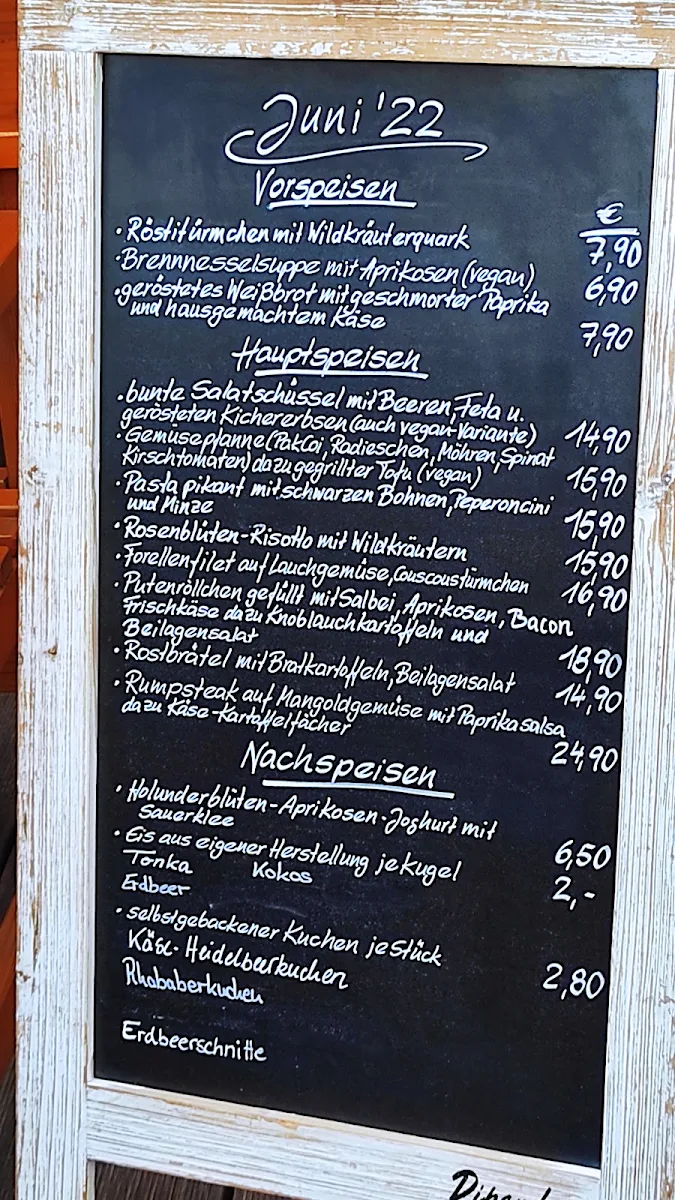 Juni '22
Vorspeisen
€
· Röstitürmchen mit Wildkräuterquark 7,90
· Brennnesselsuppe mit Aprikosen (vegan) 6,90
· geröstetes Weißbrot mit geschmorter Paprika
und hausgemachtem Käse 7,90
Hauptspeisen
· bunte Salatschüssel mit Beeren, Feta u.
gerösteten Kichererbsen (auch vegan-Variante) 14,90
· Gemüsepfanne (PakCoi, Radieschen, Möhren, Spinat
Kirschtomaten) dazu gegrillter Tofu (vegan) 15,90
· Pasta pikant mit schwarzen Bohnen, Peperoncini
und Minze 15,90
· Rosenblüten-Risotto mit Wildkräutern 15,90
· Forellenfilet auf Lauchgemüse, Couscoustürmchen 16,90
· Putenröllchen gefüllt mit Salbei, Aprikosen, Bacon
Frischkäse dazu Knoblauchkartoffeln und
Beilagensalat 18,90
· Rostbrätel mit Bratkartoffeln, Beilagensalat 14,90
· Rumpsteak auf Mangoldgemüse mit Paprikasalsa
dazu Käse-Kartoffelfächer 24,90
Nachspeisen
· Holunderblüten-Aprikosen-Joghurt mit
Sauerklee 6,50
· Eis aus eigener Herstellung je Kugel 2,-
Tonka Kokos
Erdbeer
· selbstgebackener Kuchen je Stück 2,80
Käse-Heidelbeerkuchen
Rhababerkuchen
Erdbeerschnitte